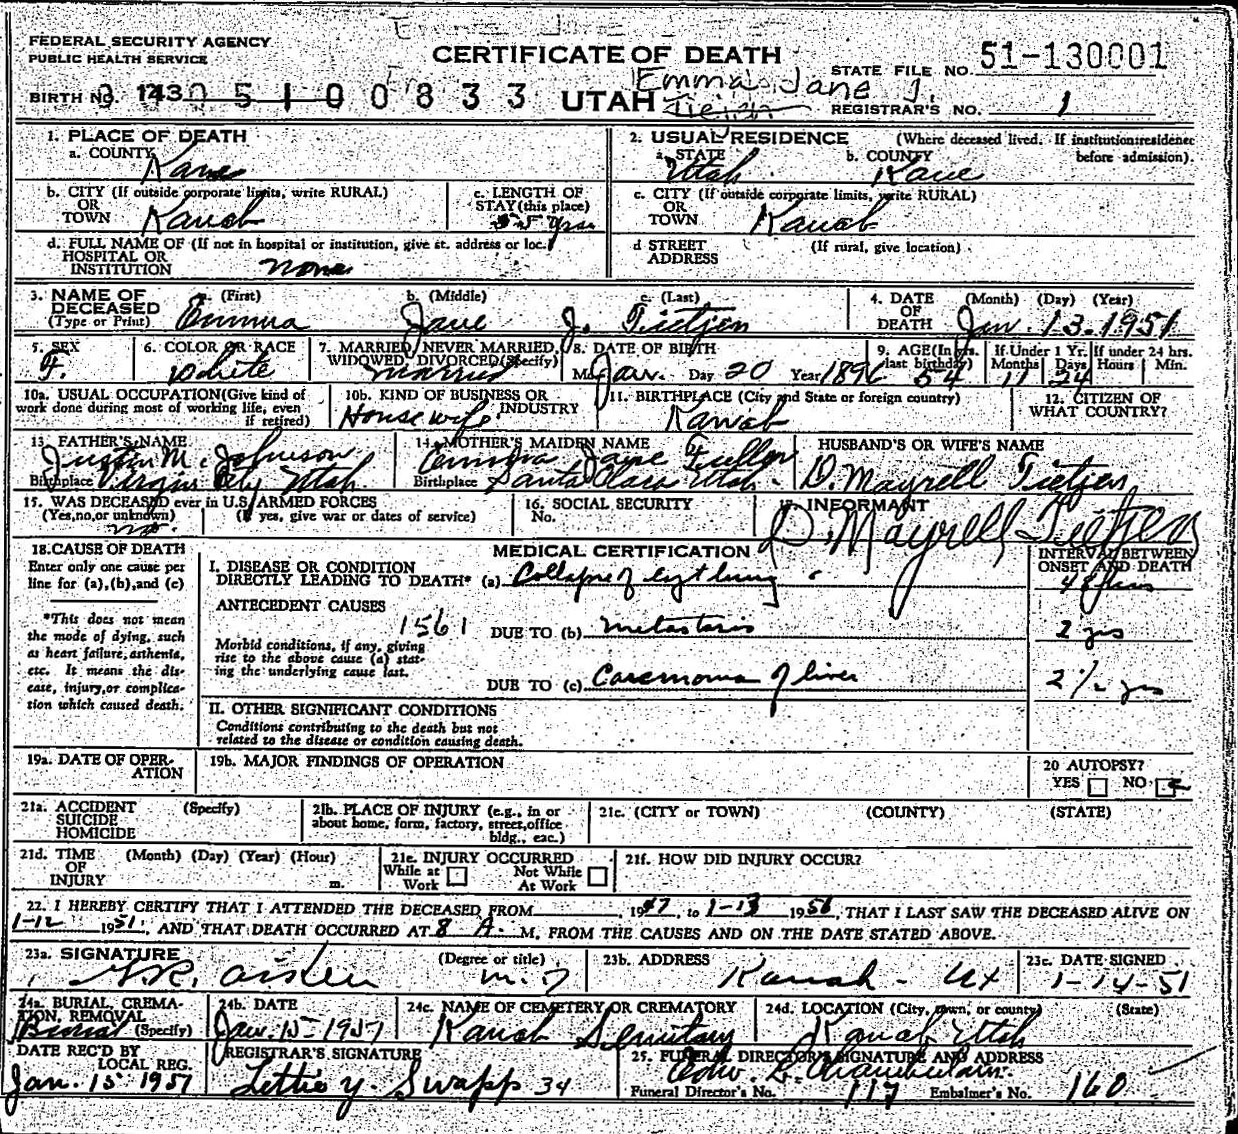 FEDERAL SECURITY AGENCY
PUBLIC HEALTH SERVICE
CERTIFICATE OF DEATH
STATE FILE NO. 51-130001
Emma Jane J.
BIRTH NO. 143 0510 0833 UTAH
REGISTRAR'S NO. 1
1. PLACE OF DEATH
a. COUNTY Kane
2. USUAL RESIDENCE (Where deceased lived. If institution:residence before admission).
a. STATE Utah b. COUNTY Kane
b. CITY (If outside corporate limits, write RURAL)
OR TOWN Kanab
c. LENGTH OF STAY (this place) yrs
c. CITY (If outside corporate limits, write RURAL)
OR TOWN Kanab
d. FULL NAME OF (If not in hospital or institution, give st. address or loc.)
HOSPITAL OR INSTITUTION none
d STREET ADDRESS (If rural, give location)
3. NAME OF DECEASED (Type or Print)
a. (First) Emma b. (Middle) Jane c. (Last) J. Tietjen
4. DATE OF DEATH (Month) (Day) (Year) Jan. 13. 1951
5. SEX F.
6. COLOR OR RACE White
7. MARRIED, NEVER MARRIED, WIDOWED, DIVORCED (Specify) married
8. DATE OF BIRTH
Mo. Jan. Day 20 Year 1896
9. AGE (In yrs. last birthday) 54
If Under 1 Yr. Months 11 Days 24
If under 24 hrs. Hours Min.
10a. USUAL OCCUPATION (Give kind of work done during most of working life, even if retired)
10b. KIND OF BUSINESS OR INDUSTRY Housewife
11. BIRTHPLACE (City and State or foreign country) Kanab
12. CITIZEN OF WHAT COUNTRY?
13. FATHER'S NAME Justin M. Johnson
Birthplace Virgin City Utah
14. MOTHER'S MAIDEN NAME Emma Jane Fuller
Birthplace Santa Clara Utah
HUSBAND'S OR WIFE'S NAME
D. Mayrell Tietjen
15. WAS DECEASED ever in U.S. ARMED FORCES
(Yes,no,or unknown) no (If yes, give war or dates of service)
16. SOCIAL SECURITY No.
17. INFORMANT D. Mayrell Tietjen
18. CAUSE OF DEATH
Enter only one cause per line for (a),(b),and (c)
*This does not mean the mode of dying, such as heart failure, asthenia, etc. It means the disease, injury,or complication which caused death.
MEDICAL CERTIFICATION
INTERVAL BETWEEN ONSET AND DEATH
I. DISEASE OR CONDITION DIRECTLY LEADING TO DEATH* (a) Collapse of lung 48 hrs
ANTECEDENT CAUSES
1561
Morbid conditions, if any, giving rise to the above cause (a) stating the underlying cause last.
DUE TO (b) metastasis 2 yrs
DUE TO (c) Carcinoma of liver 2 1/2 yrs
II. OTHER SIGNIFICANT CONDITIONS
Conditions contributing to the death but not related to the disease or condition causing death.
19a. DATE OF OPERATION
19b. MAJOR FINDINGS OF OPERATION
20 AUTOPSY?
YES NO
21a. ACCIDENT SUICIDE HOMICIDE (Specify)
21b. PLACE OF INJURY (e.g., in or about home, form, factory, street,office bldg., eac.)
21c. (CITY or TOWN) (COUNTY) (STATE)
21d. TIME OF INJURY (Month) (Day) (Year) (Hour) m.
21e. INJURY OCCURRED
While at Work Not While At Work
21f. HOW DID INJURY OCCUR?
22. I HEREBY CERTIFY THAT I ATTENDED THE DECEASED FROM 1947, to 1-13 1956, THAT I LAST SAW THE DECEASED ALIVE ON
1-12 1951, AND THAT DEATH OCCURRED AT 8 A. M, FROM THE CAUSES AND ON THE DATE STATED ABOVE.
23a. SIGNATURE Aiken (Degree or title) M.D.
23b. ADDRESS Kanab - Ut
23c. DATE SIGNED 1-14-51
24a. BURIAL, CREMATION, REMOVAL (Specify) Burial
24b. DATE Jan. 15 1951
24c. NAME OF CEMETERY OR CREMATORY Kanab
24d. LOCATION (City, town, or county) (State) Kanab Utah
DATE REC'D BY LOCAL REG. Jan. 15 1951
REGISTRAR'S SIGNATURE Lettie Y. Swapp 34
25. FUNERAL DIRECTOR'S SIGNATURE AND ADDRESS Chamberlain
Funeral Director's No. 117 Embalmer's No. 160